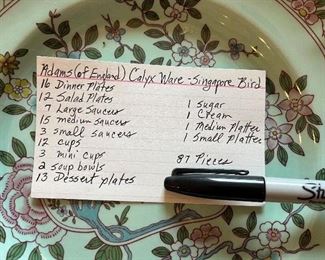 Adams (of England) Calyx Ware - Singapore Bird
16 Dinner Plates
12 Salad Plates
7 Large Saucers
15 medium Saucers
3 small saucers
12 cups
3 mini cups
2 soup bowls
13 Dessert plates
1 Sugar
1 Cream
1 Medium Platter
1 Small Platter
87 Pieces